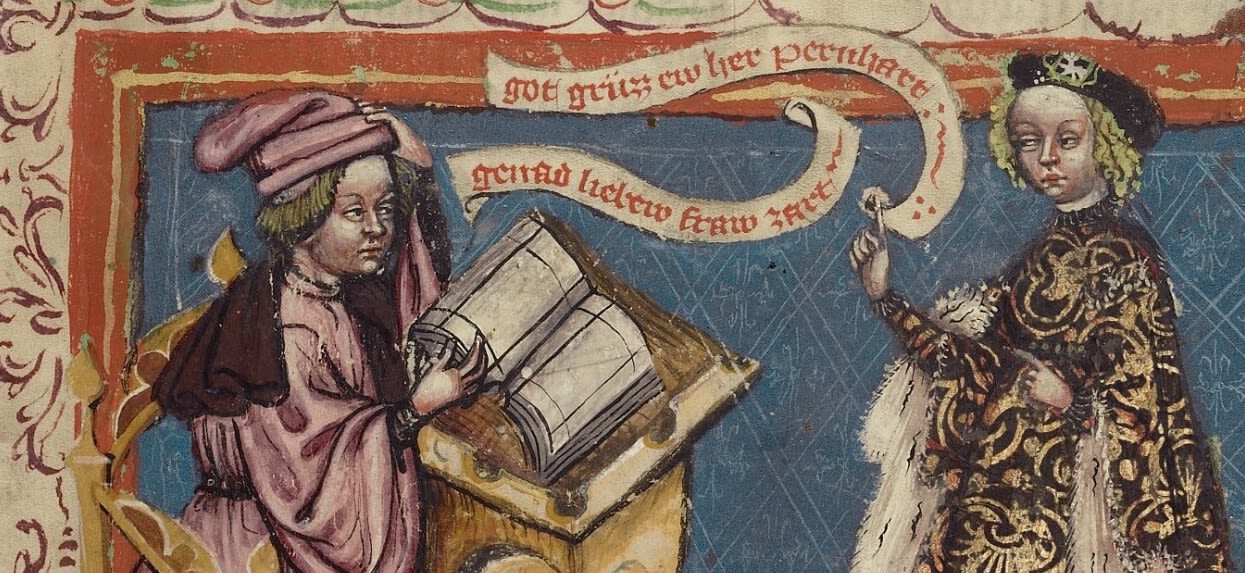 got grüzz ew her pernhart :
genad liebew fraw zart